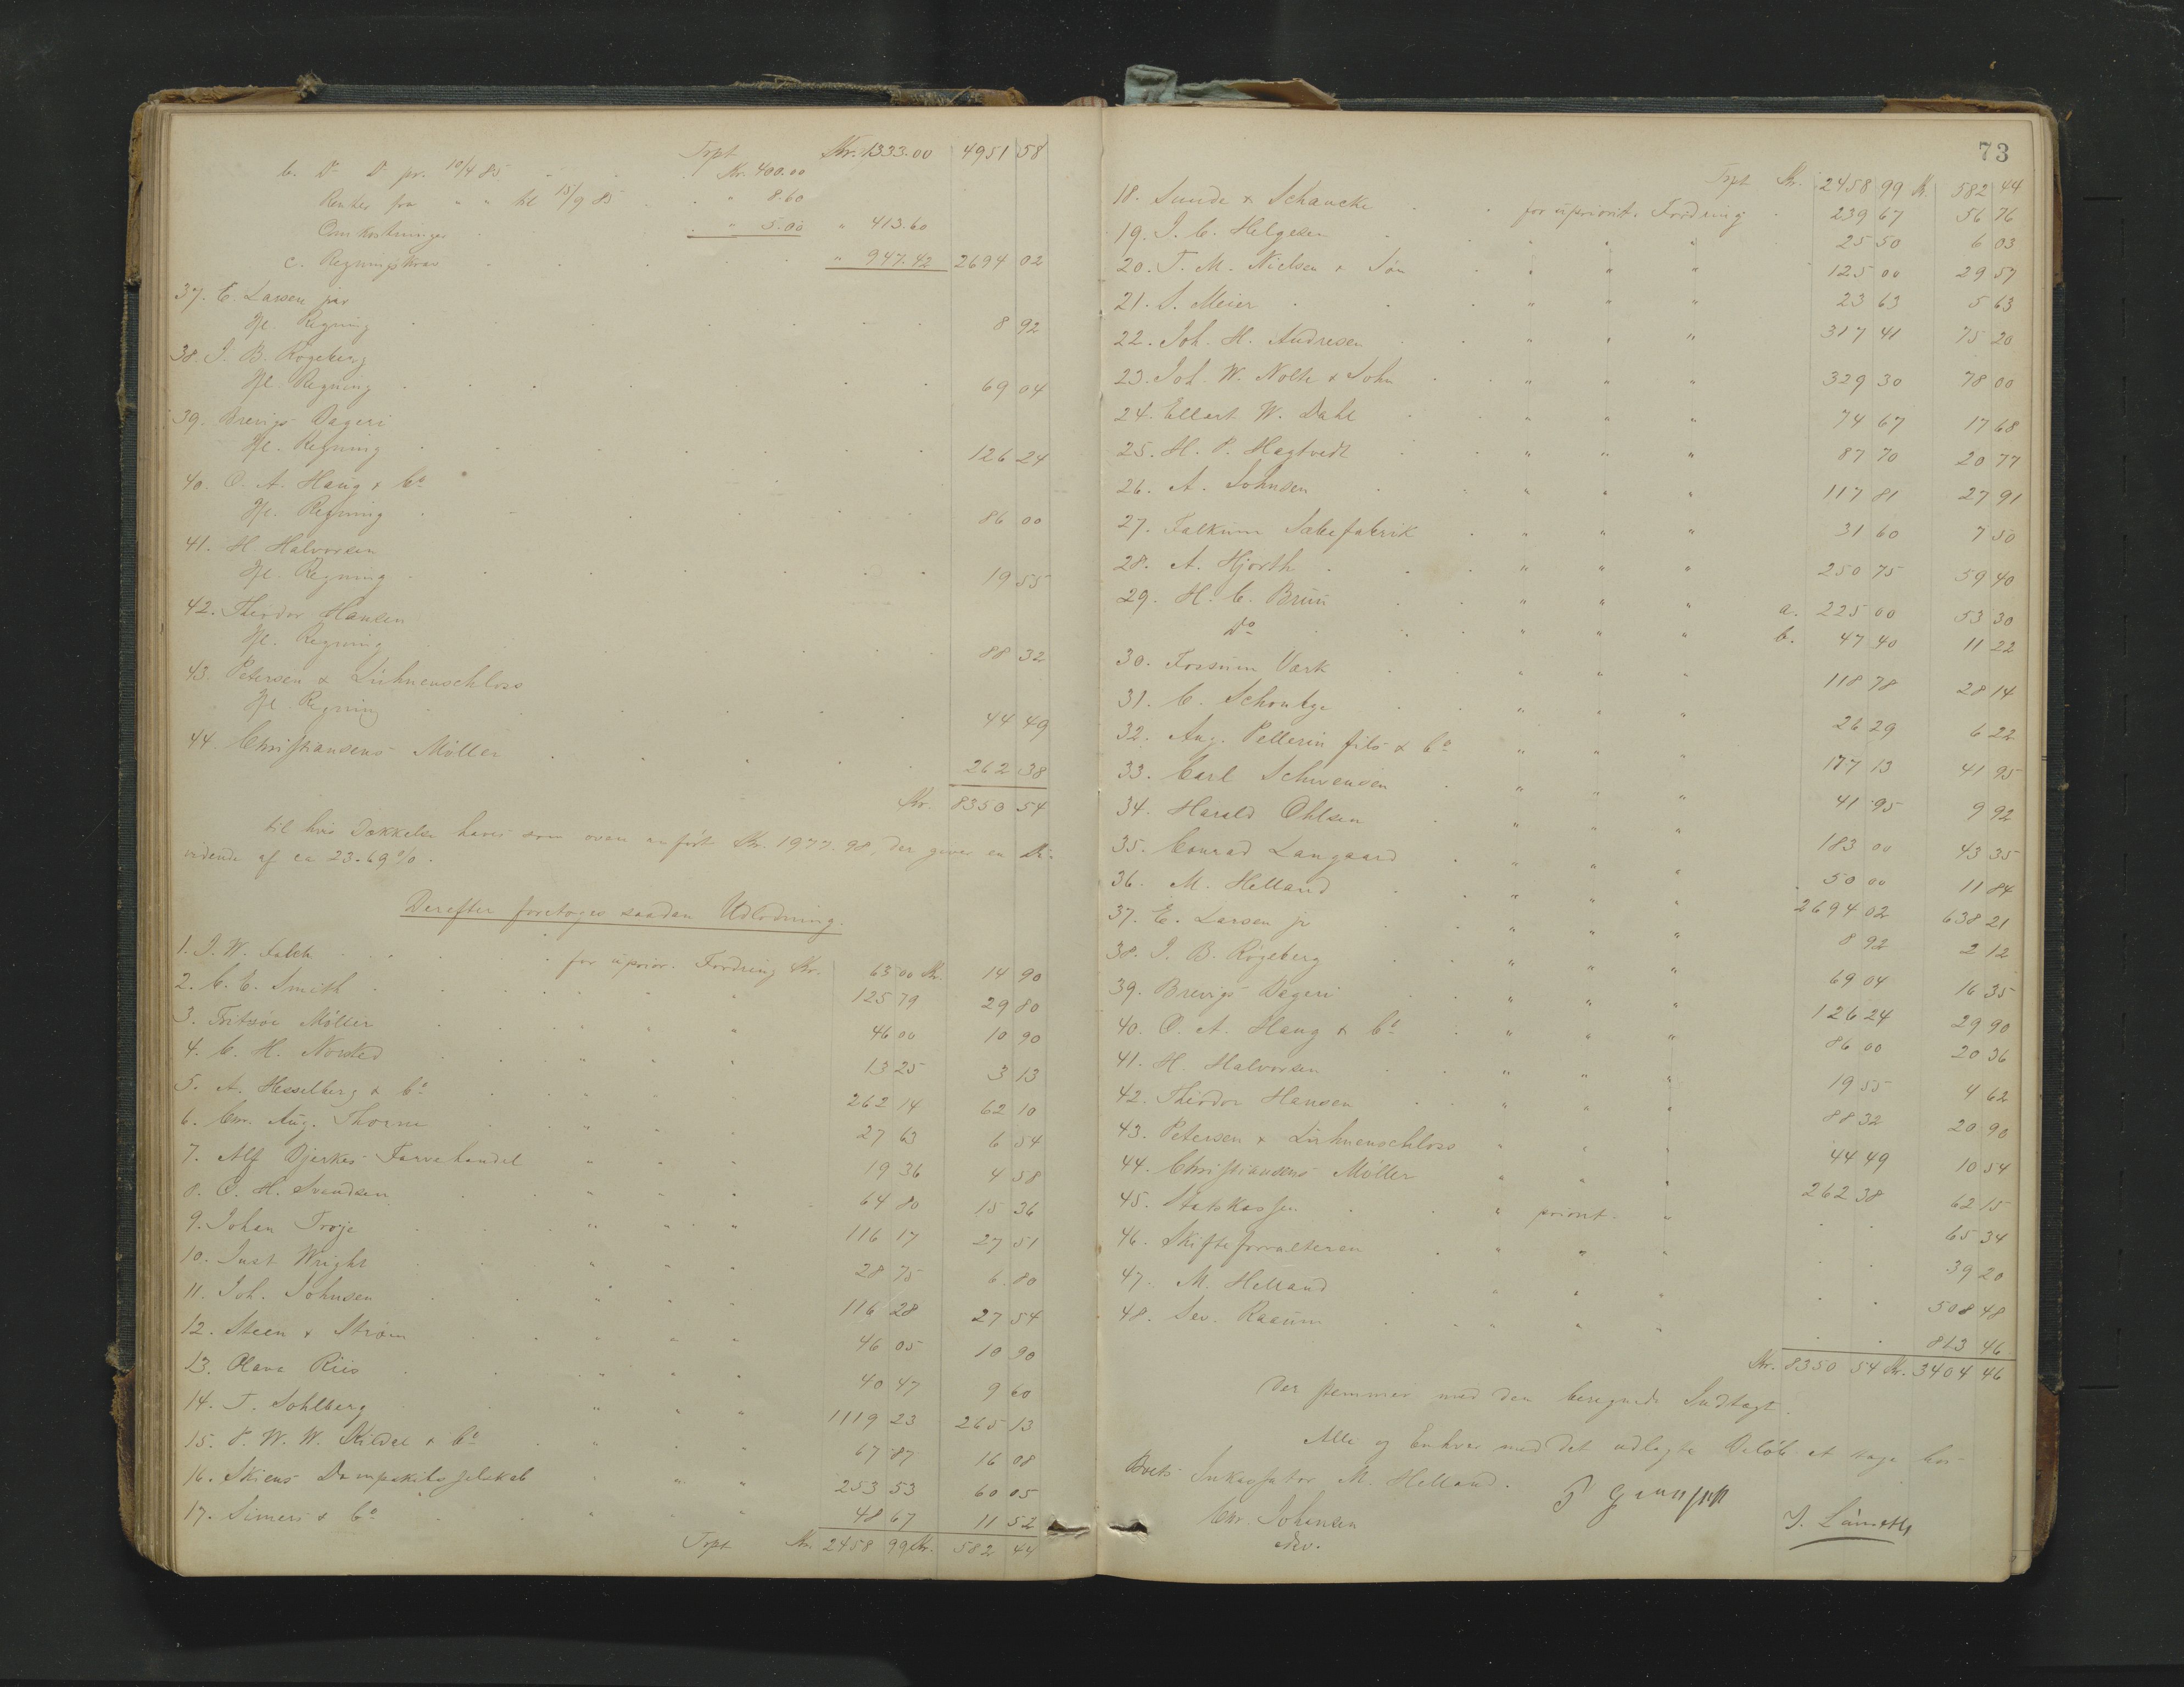 Trpt Kr. 1333.00 4951 58
b. Do Do pr. 10/4 85 " " Kr. 400.00
Renter fra " " til 15/9 85 " 8.60
Omkostninger " 5.00 " 413.60
c. Regningskrav " 947.42 2694 02
37. E. Larsen jun
Ifl. Regning 8 92
38. J. B. Rögeberg
Ifl. Regning 69 04
39. Brevigs Bageri
Ifl. Regning 126 24
40. O. A. Haug & Co
Ifl. Regning 86 00
41. H. Halvorsen
Ifl. Regning 19 55
42. Theodor Hansen
Ifl. Regning 88 32
43. Petersen & Lühnenschloss
Ifl. Regning 44 49
44. Christiansens Möller 262 38
Kr. 8350 54
til hvis Dækkelse haves som oven anfört Kr. 1977.98, der giver en Di-
vidende af ca 23.69 %.
Derefter foretoges saadan Udlodning.
1. J. W. Falch for uprior. Fordring Kr. 63 00 Kr. 14 90
2. C. E. Smith " " 125 79 29 80
3. Fritzöe Möller " " 46 00 10 90
4. C. H. Norsted " " " 13 25 3 13
5. A. Hesselberg & Co " " " 262 14 62 10
6. Chr. Aug. Thorne " " " 27 63 6 54
7. Alf Bjerkes Farvehandel " " " 19 36 4 58
8. O. H. Svendsen " " " 64 80 15 36
9. Johan Troye " " " 116 17 27 51
10. Just Wright " " " 28 75 6 80
11. Joh. Johnsen " " " 116 28 27 54
12. Steen & Ström " " " 46 05 10 90
13. Olava Riis " " " 40 47 9 60
14. T. Sohlberg " " " 1119 23 265 13
15. P. W. W. Kildal & Co " " " 67 87 16 08
16. Skiens Dampskibsselskab " " " 253 53 60 05
17. Simers & Co " " " 48 67 11 52
Trpt Kr. 2458 99 Kr. 582 44
73
Trpt Kr. 2458 99 Kr. 582 44
18. Sunde & Schancke for upriorit. Fordring 239 67 56 76
19. J. C. Helgesen " " " 25 50 6 03
20. T. M. Nielsen & Sön " " " 125 00 29 57
21. S. Meier " " " 23 63 5 63
22. Joh. H. Andresen " " " 317 41 75 20
23. Joh. W. Nolte & Sohn " " " 329 30 78 00
24. Ellert W. Dahl " " " 74 67 17 68
25. H. P. Hagtvedt " " " 87 70 20 77
26. A. Johnsen " " " 117 81 27 91
27. Falkum Sæbefabrik " " " 31 60 7 50
28. A. Hjorth " " " 250 75 59 40
29. H. C. Bruu " " " a. 225 00 53 30
Do " " " b. 47 40 11 22
30. Fossum Værk " " " 118 78 28 14
31. C. Schontge " " " 26 29 6 22
32. Aug. Pellerin fils & Co " " " 177 13 41 95
33. Carl Schwensen " " " 41 95 9 92
34. Harald Ohlsen " " " 183 00 43 35
35. Conrad Langaard " " " 50 00 11 84
36. M. Helland " " " 2694 02 638 21
37. E. Larsen jr " " " 8 92 2 12
38. J. B. Rögeberg " " " 69 04 16 35
39. Brevigs Bageri " " " 126 24 29 90
40. O. A. Haug & Co " " " 86 00 20 36
41. H. Halvorsen " " " 19 55 4 62
42. Theodor Hansen " " " 88 32 20 90
43. Petersen & Lühnenschloss " " " 44 49 10 54
44. Christiansens Möller " " " 262 38 62 15
45. Statskassen " priorit. " 65 34
46. Skifteforvalteren " " " 39 20
47. M. Helland " " " 508 48
48. Sev. Raaum " " " 813 46
Kr. 8350 54 Kr. 3404 46
Der stemmer med den beregnede Indtægt.
Alle og Enhver med det udlagte Belöb at söge hos
Boets Inkassator M. Helland.
Chr. Johnsen